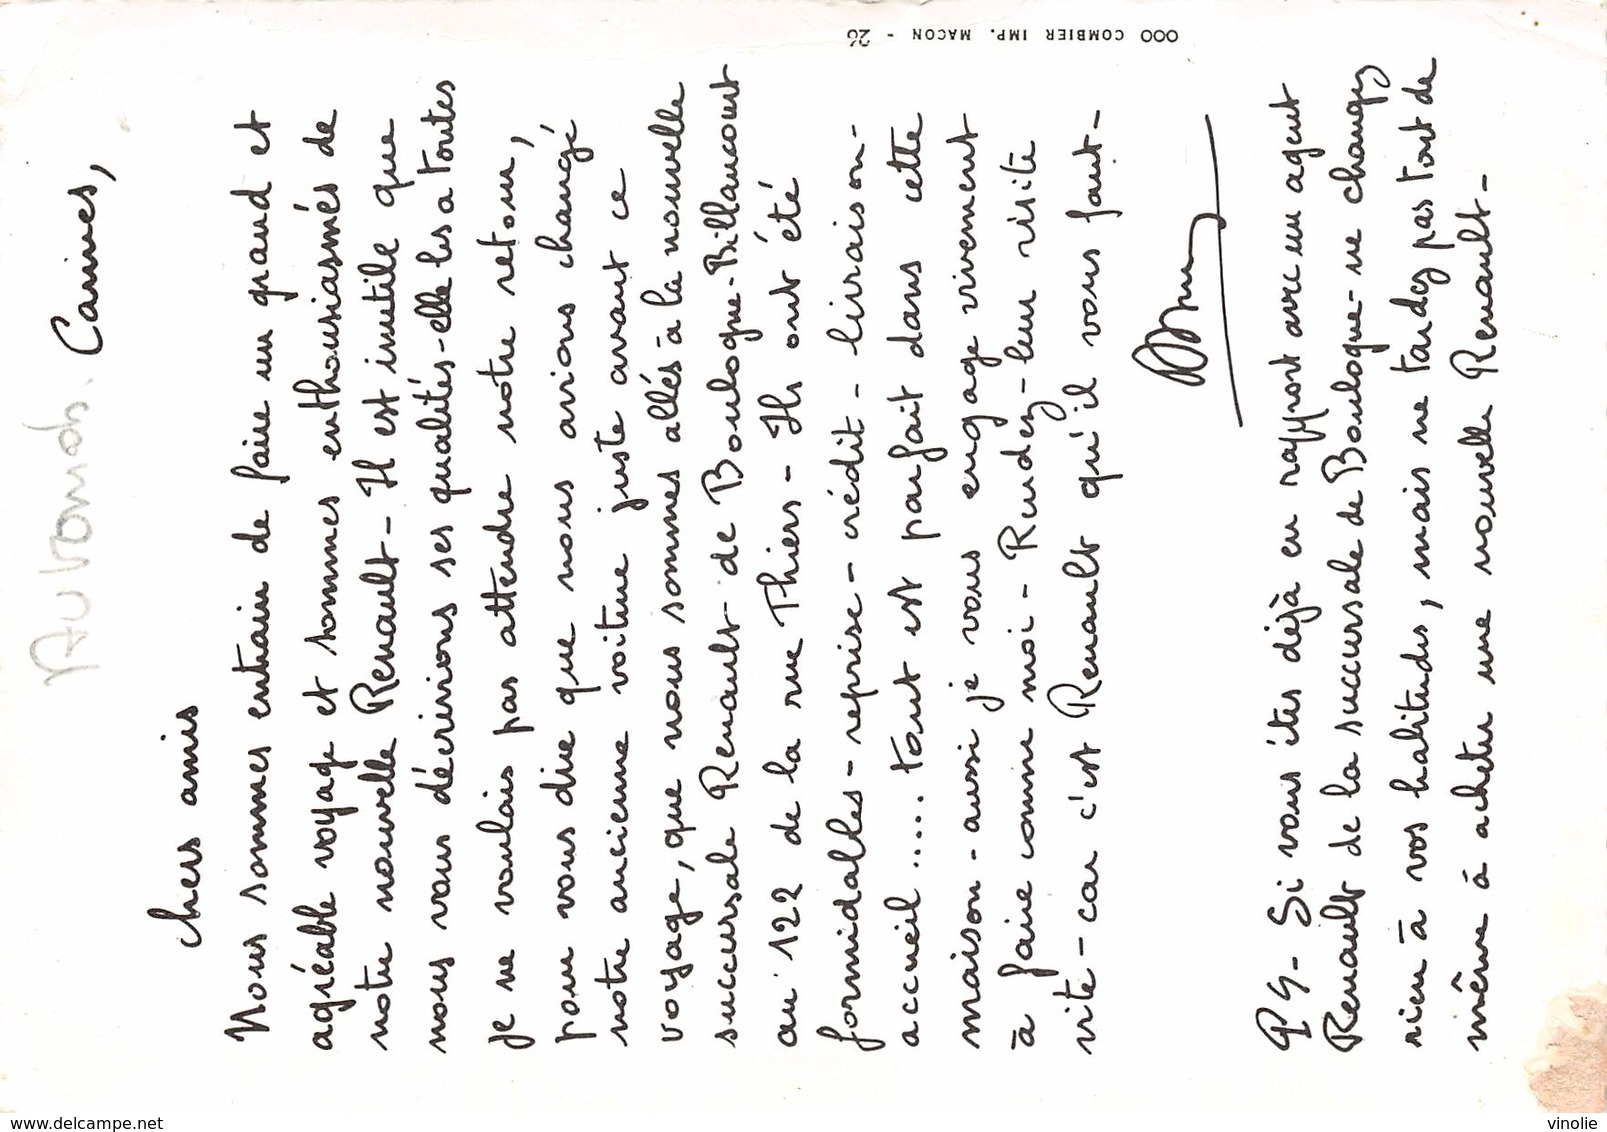 Automob.
Cannes,
chers amis
Nous sommes entrain de faire un grand et
agréable voyage et sommes enthousiasmés de
notre nouvelle Renault - Il est inutile que
nous vous décrivions ses qualités - elle les a toutes
je ne voulais pas attendre notre retour,
pour vous dire que nous avions changé
notre ancienne voiture juste avant ce
voyage, que nous sommes allés à la nouvelle
succursale Renault - de Boulogne-Billancourt
au 122 de la rue Thiers - Ils ont été
formidables - reprise - crédit - livraison -
accueil ..... tout est parfait dans cette
maison - aussi je vous engage vivement
à faire comme moi - Rendez-leur visite
vite - car c'est Renault qu'il vous faut -
PS - Si vous êtes déjà en rapport avec un agent
Renault de la succursale de Boulogne - ne changez
rien à vos habitudes, mais ne tardez pas tout de
même à acheter une nouvelle Renault -
OOO COMBIER IMP. MACON - 26
www.delcampe.net
vinolie